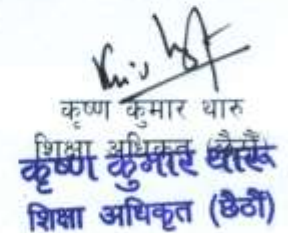 कृष्ण कुमार थारु
शिक्षा अधिकृत (छैठौँ)
कृष्ण कुमार थारू
शिक्षा अधिकृत (छैठौं)